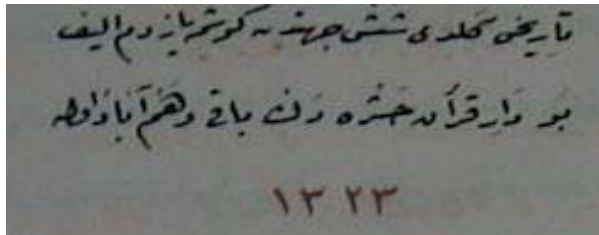 تاریخی کلدی شش جهتدن کوش یازدم الیف
بو دار قرآن حشره دك باقی و هم آباد اوله
١٣٢٣